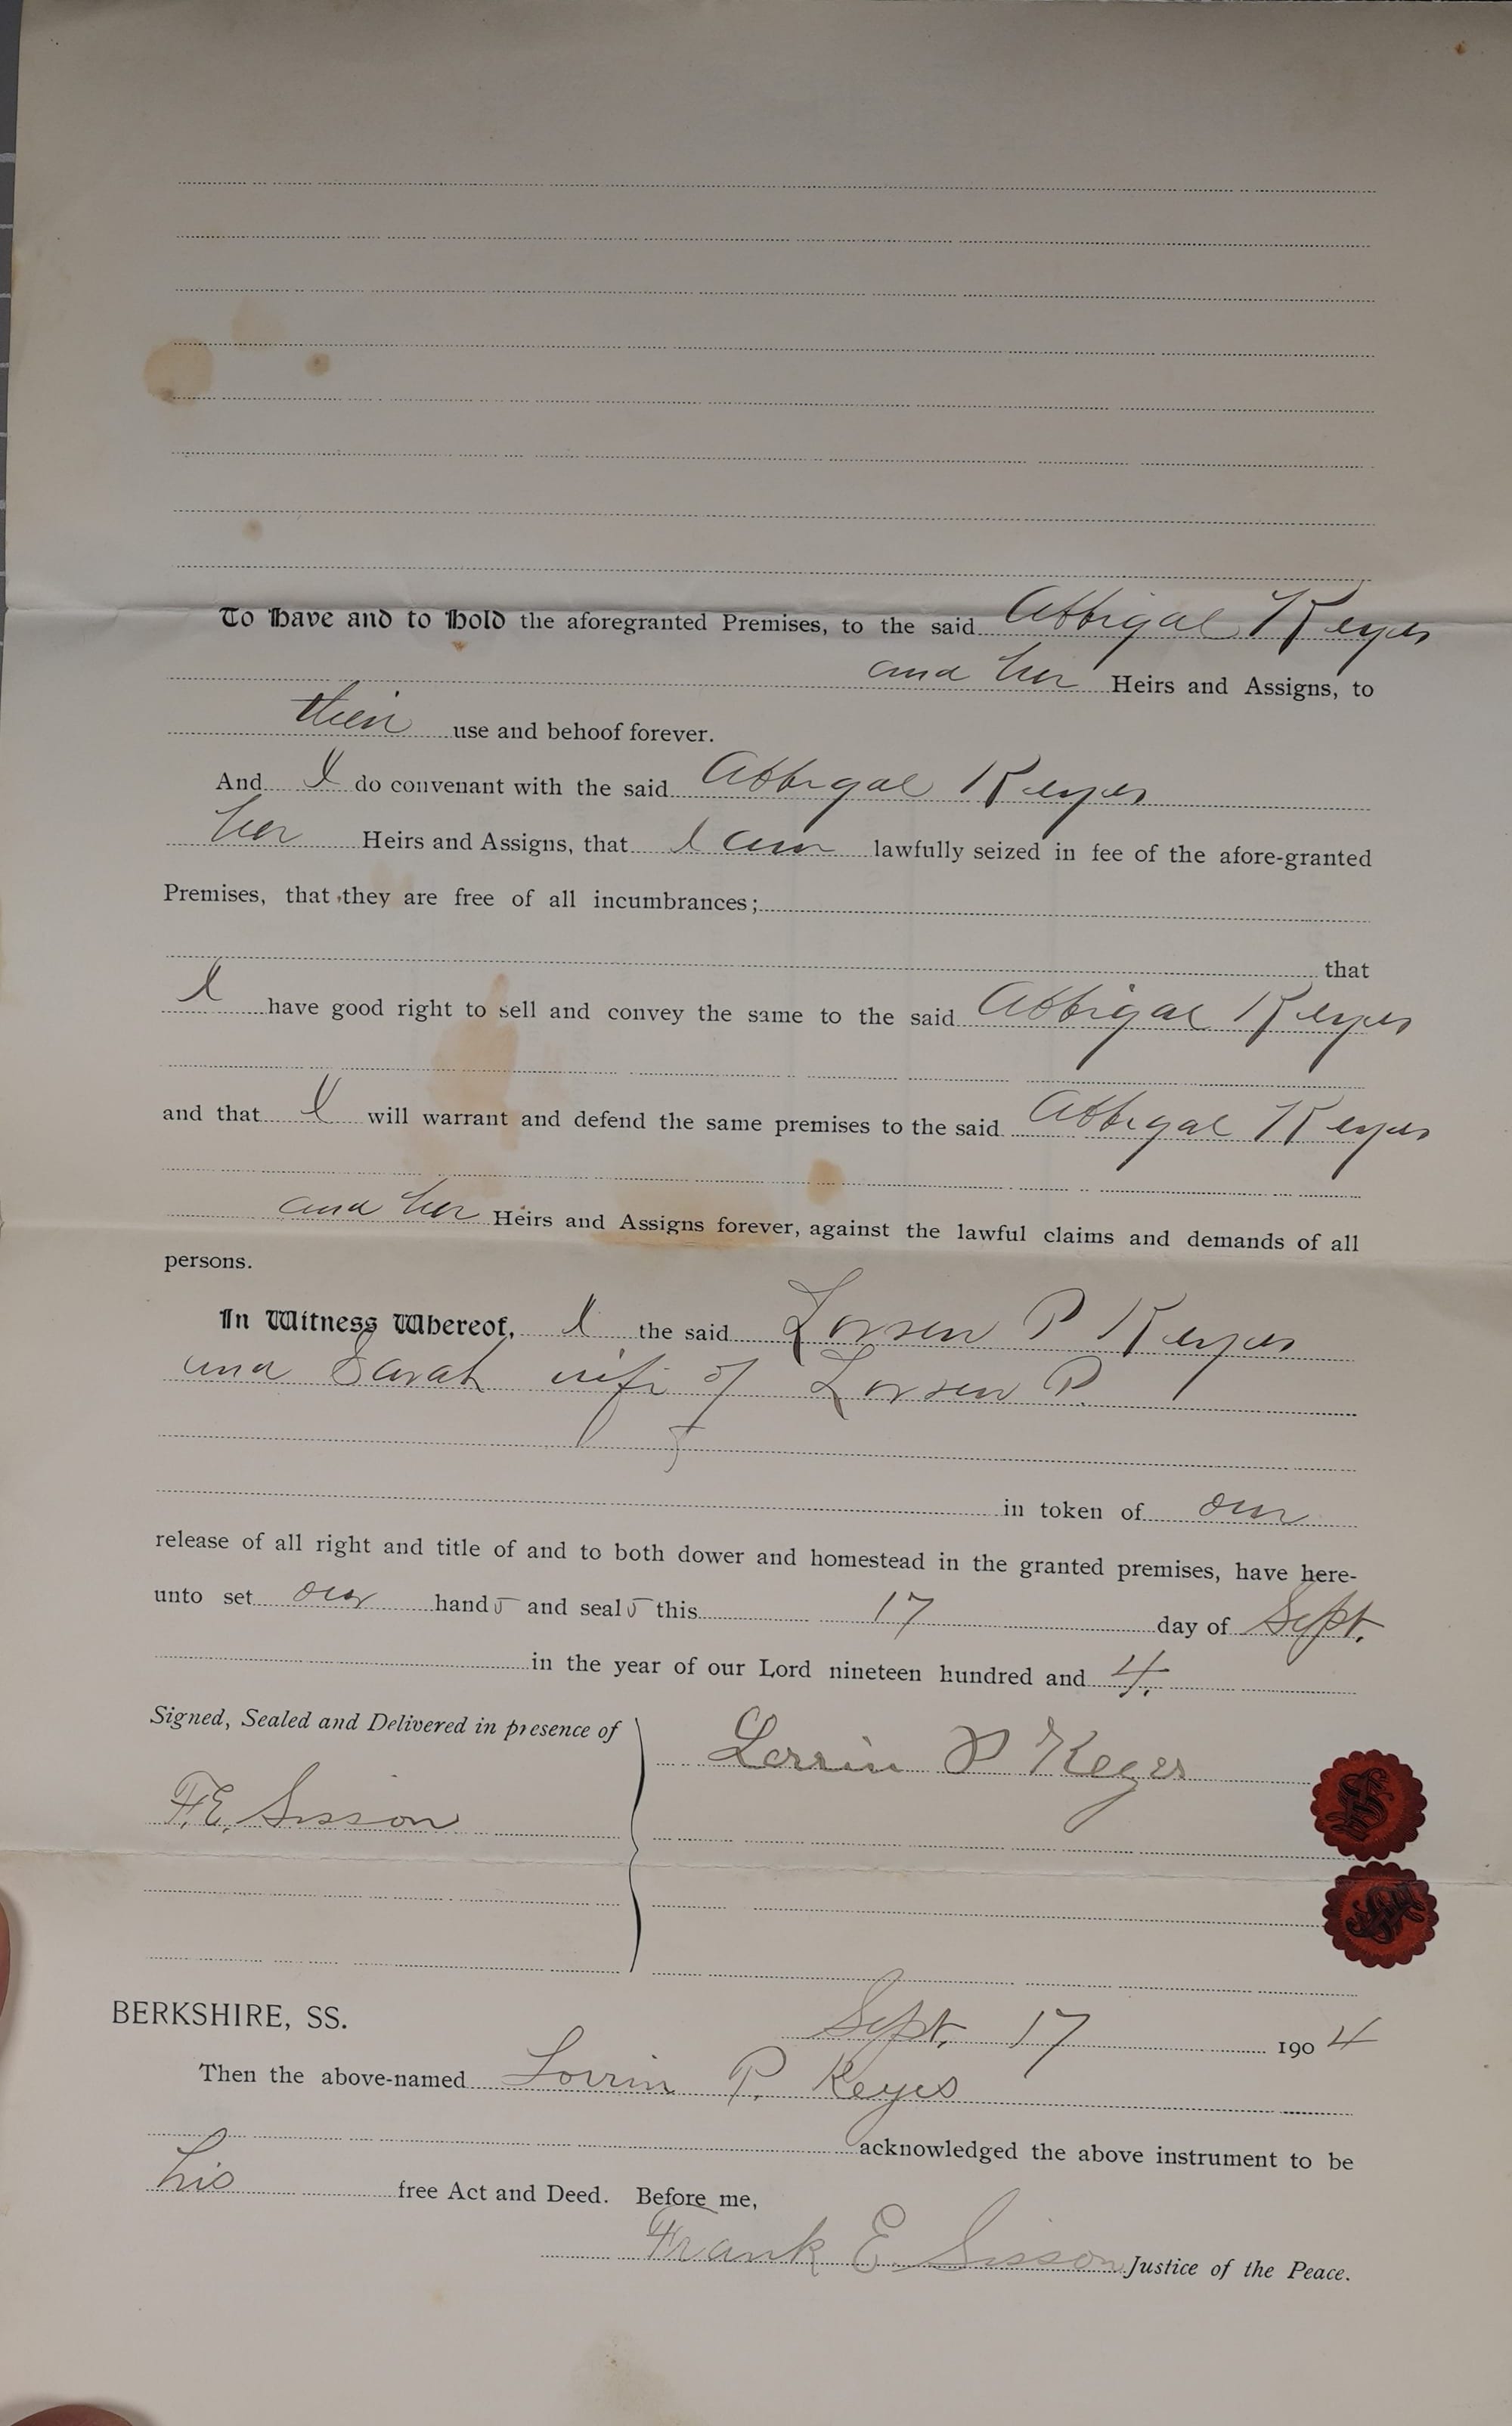 To Have and to Hold the aforegranted Premises, to the said Abbigal Keyes
and her Heirs and Assigns, to
their use and behoof forever.
And I do convenant with the said Abbigal Keyes
her Heirs and Assigns, that I am lawfully seized in fee of the afore-granted
Premises, that they are free of all incumbrances;
that
I have good right to sell and convey the same to the said Abbigal Keyes
and that I will warrant and defend the same premises to the said Abbigal Keyes
and her Heirs and Assigns forever, against the lawful claims and demands of all
persons.
In Witness Whereof, I the said Lorren P Keyes
and Sarah wife of Lorren P.
in token of our
release of all right and title of and to both dower and homestead in the granted premises, have here-
unto set our hands and seals this 17 day of Sept.
in the year of our Lord nineteen hundred and 4.
Signed, Sealed and Delivered in presence of
Lorrin P Keyes
F. E. Sisson
BERKSHIRE, SS.
Sept. 17 1904
Then the above-named Lorrin P. Keyes
acknowledged the above instrument to be
his free Act and Deed. Before me,
Frank E. Sisson Justice of the Peace.